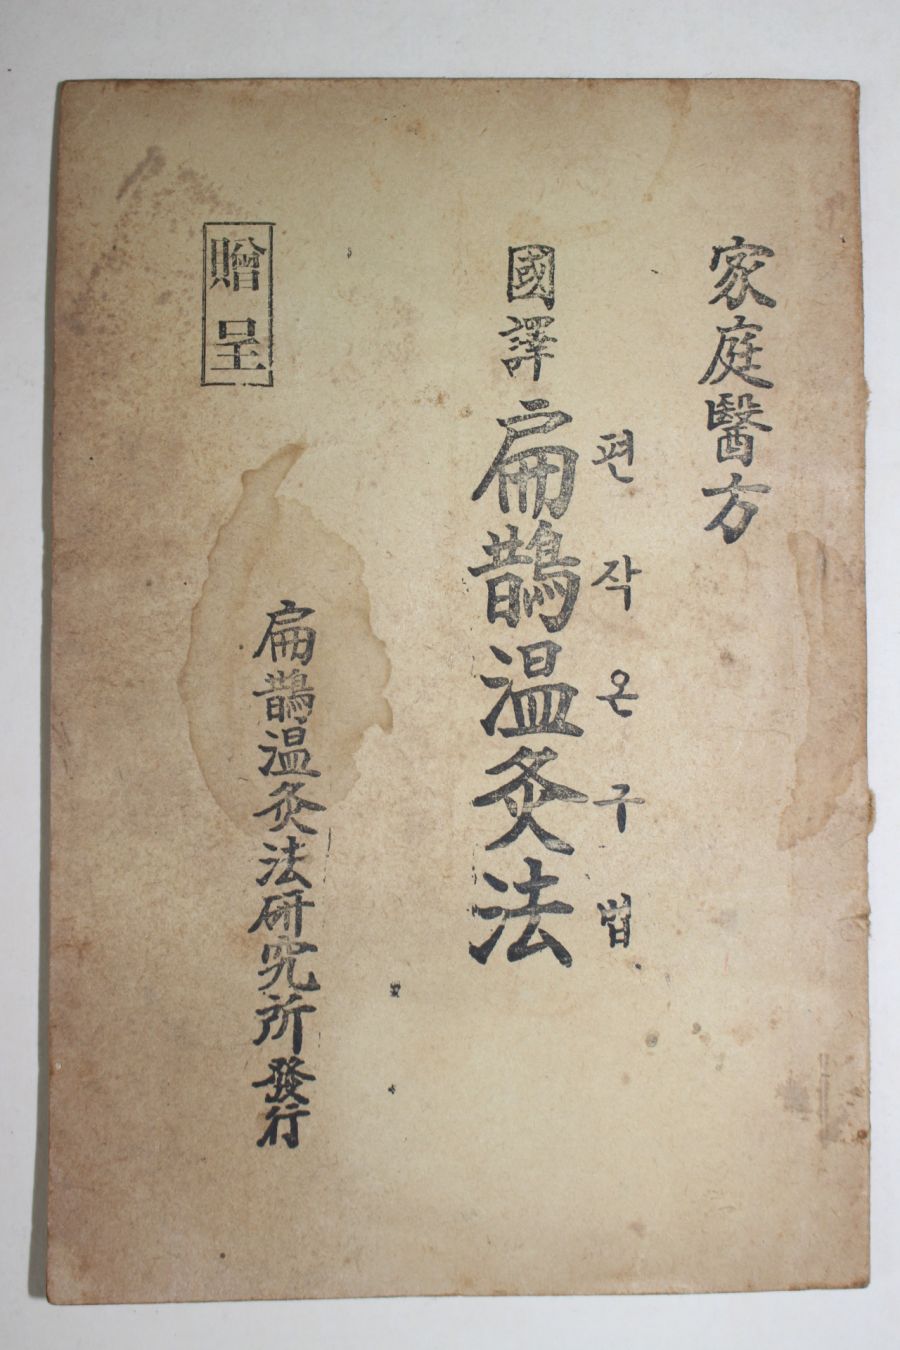 家庭醫方
편작온구법
國譯 扁鵲溫灸法
贈呈
扁鵲溫灸法硏究所發行